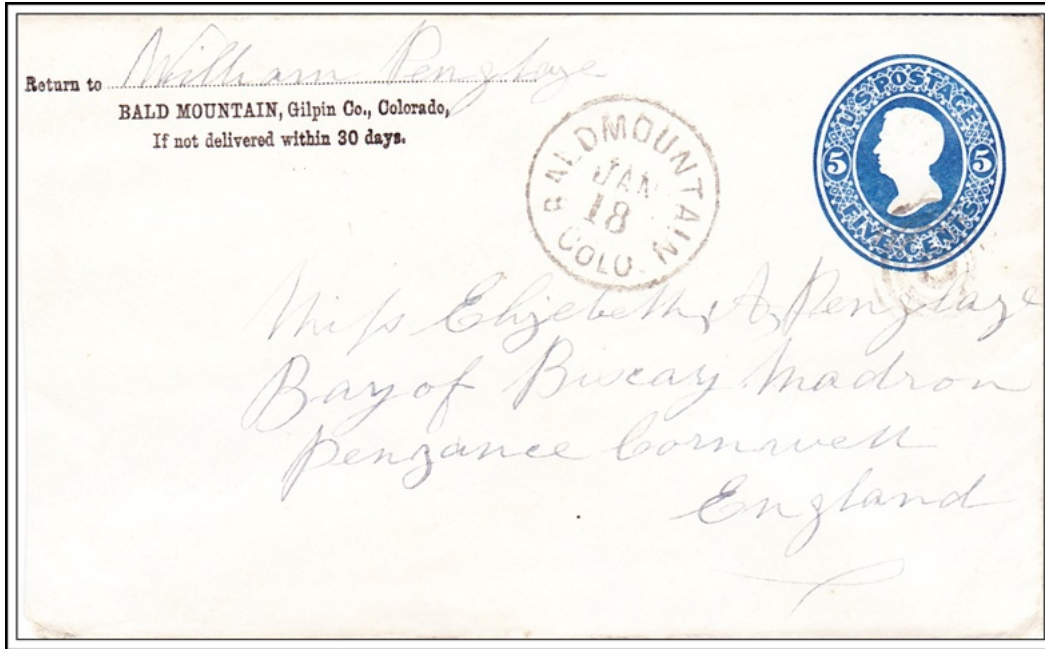 Return to William Penglaze
BALD MOUNTAIN, Gilpin Co., Colorado,
If not delivered within 30 days.
BALD MOUNTAIN
JAN
18
COLO.
U.S. POSTAGE
5 5
FIVE CENTS
Miss Elizebeth A Penglaze
Bay of Biscay Madron
Penzance Cornwell
England